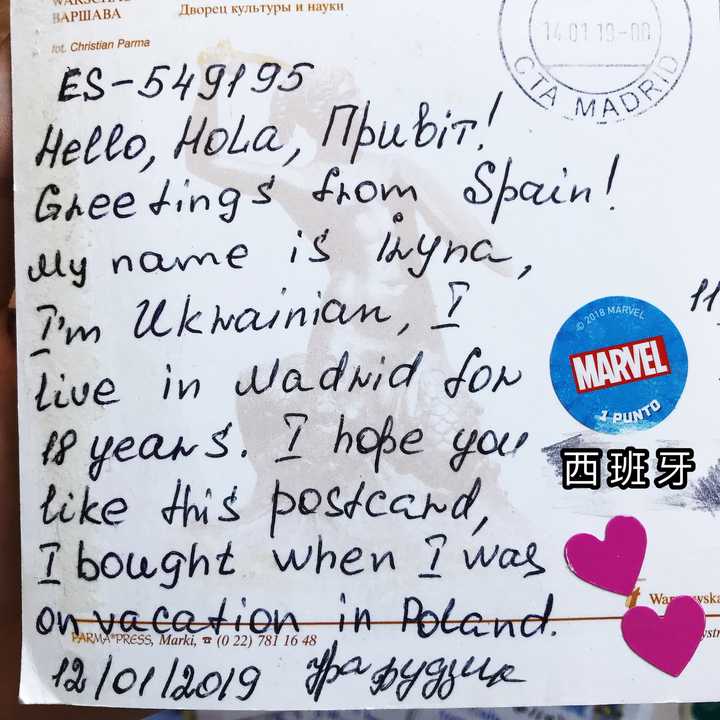 ВАРШАВА
Дворец культуры и науки
fot. Christian Parma
14 01 19-00
CTA MADRID
ES-549195
Hello, Hola, Привіт!
Greetings from Spain!
My name is Iryna,
I'm Ukrainian, I
live in Madrid for
18 years. I hope you
like this postcard,
I bought when I was
on vacation in Poland.
PARMA®PRESS, Marki, ☎ (0 22) 781 16 48
12/01/2019
11
© 2018 MARVEL
MARVEL
1 PUNTO
西班牙